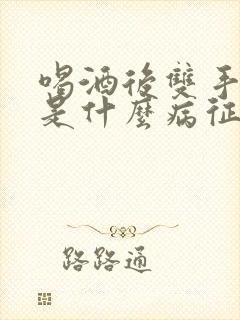 喝酒後雙手
是什麼病征
路路通